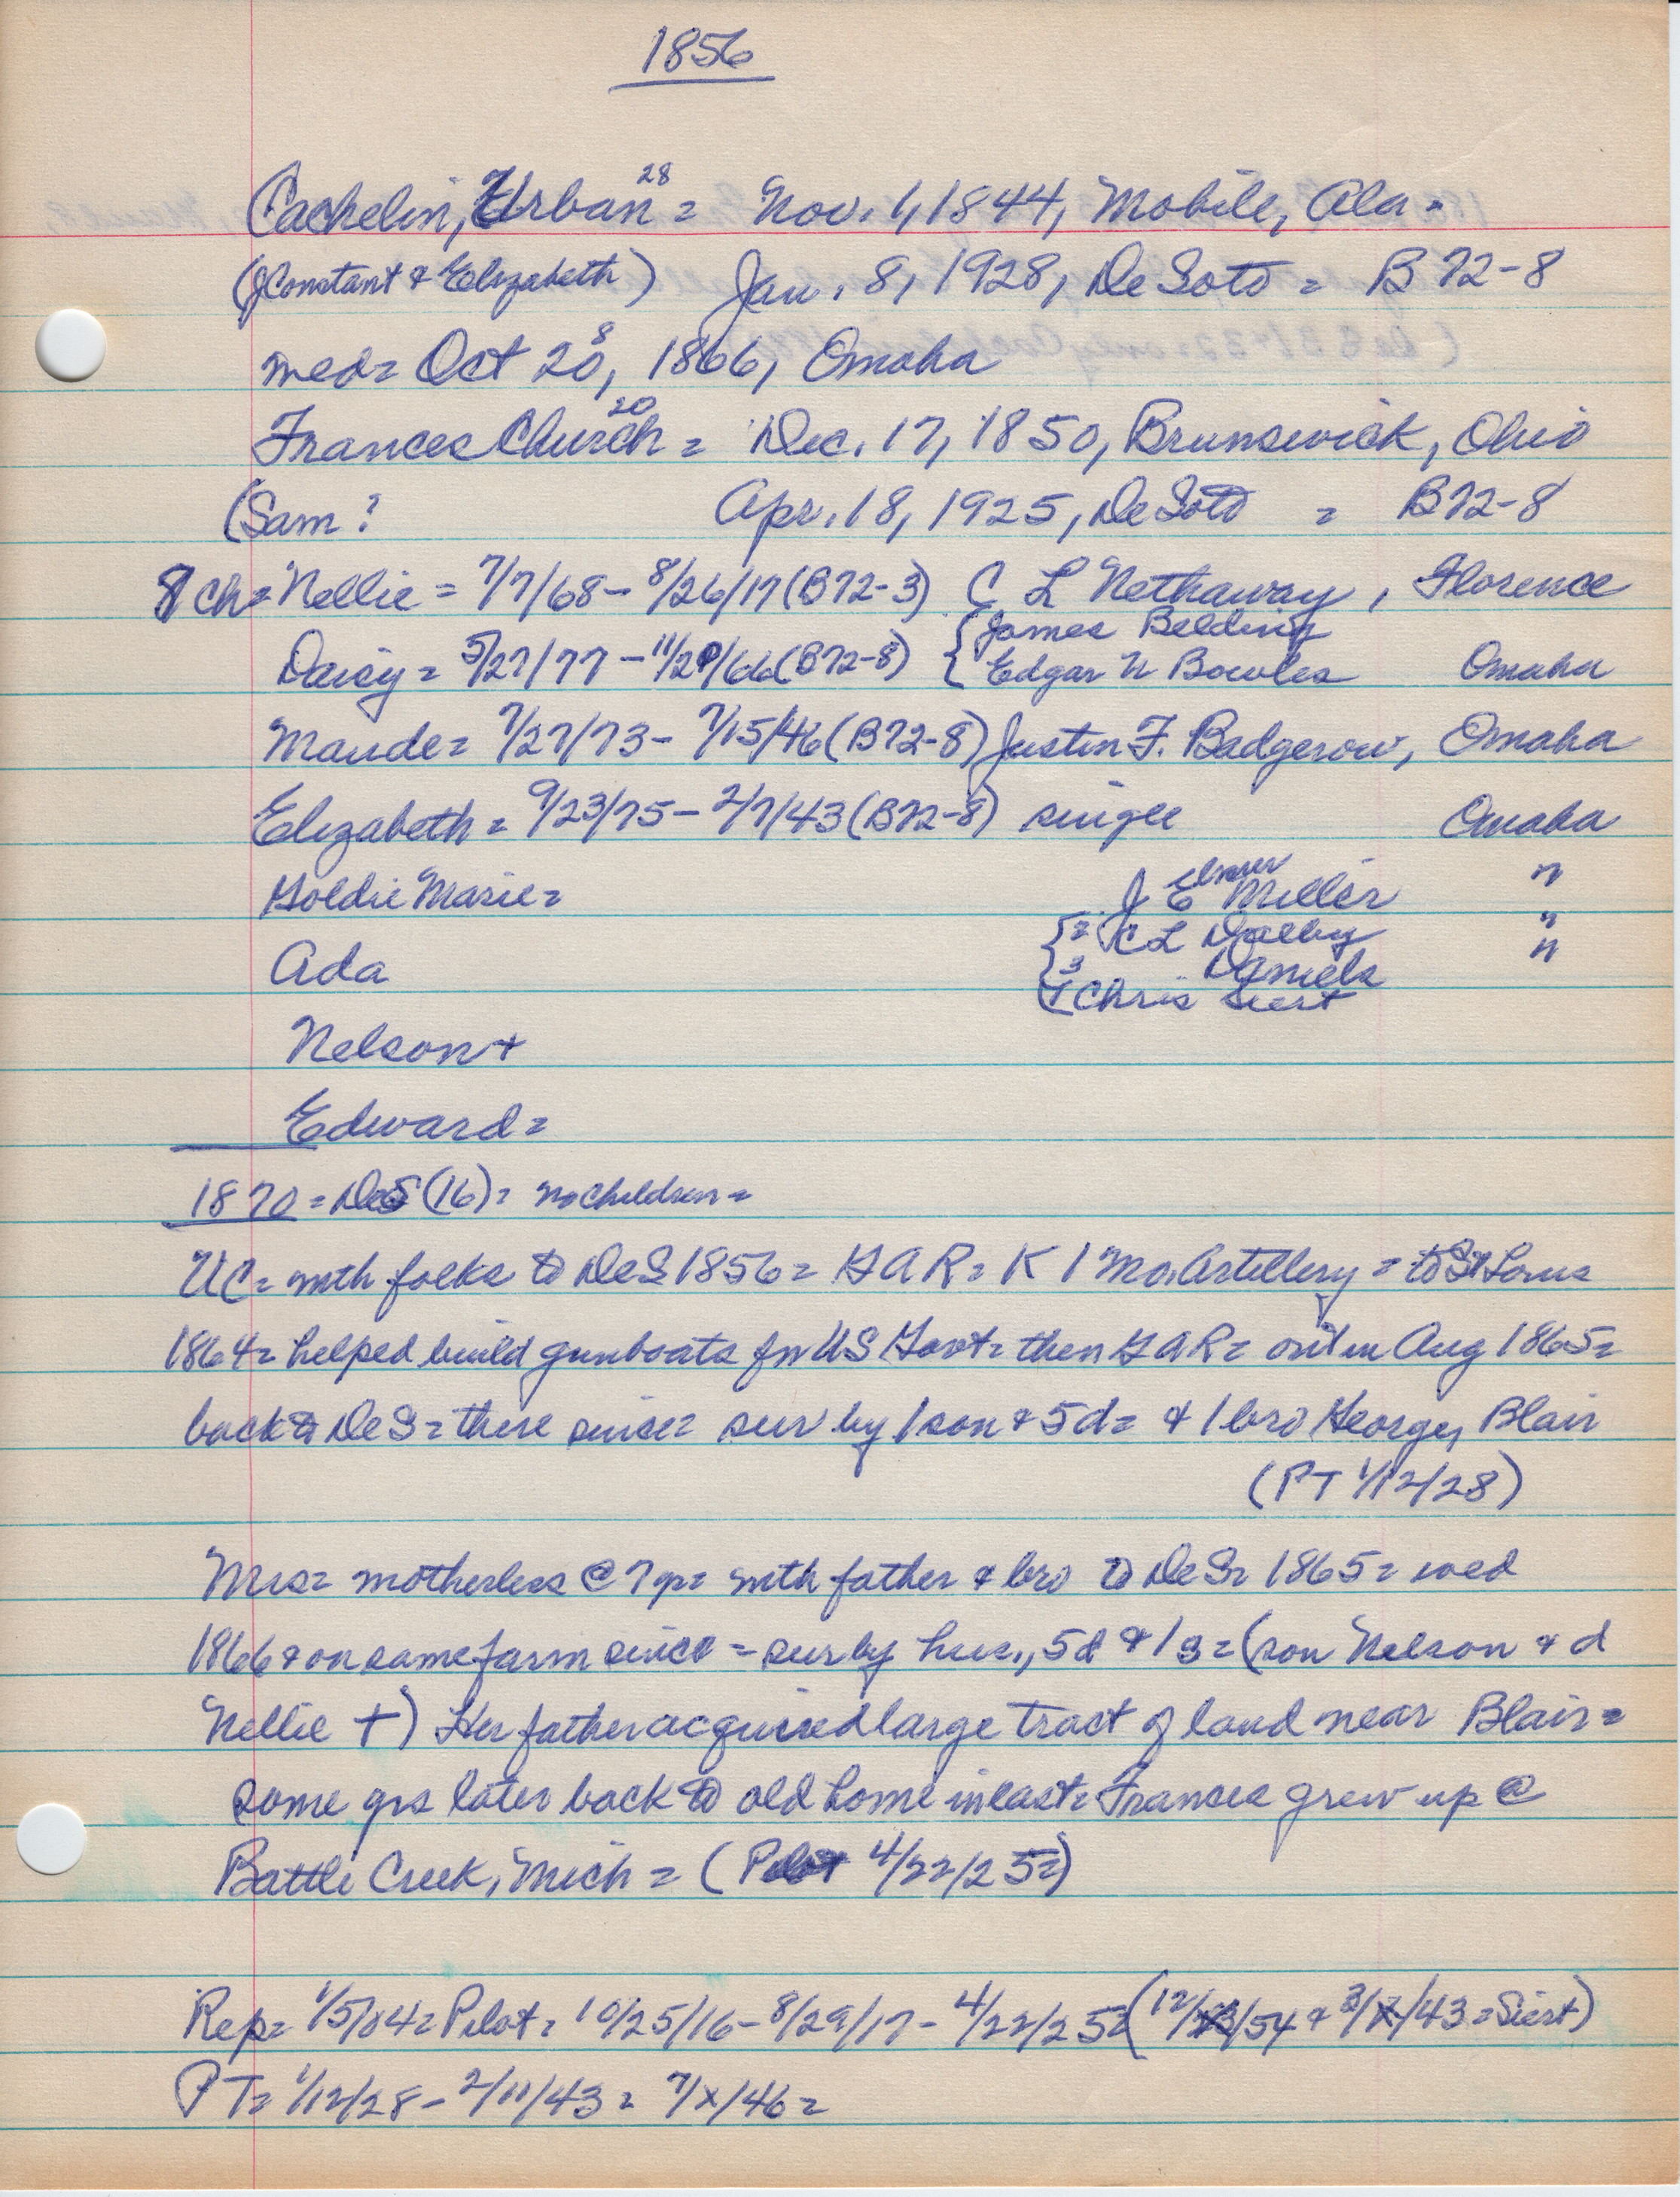 1856
Cachelin, Urban 28 = Nov. 1, 1844, Mobile, Ala =
(J Constant & Elizabeth) Jan. 8, 1928, De Soto = B 72-8
med= Oct 28, 1866, Omaha
Frances Church 20 = Dec. 17, 1850, Brunswick, Ohio
(Sam ? Apr. 18, 1925, De Soto = B72-8
8 ch= Nellie = 7/7/68 - 8/26/17 (B72-3) C L Nethaway, Florence
Daisy = 5/27/77 - 11/29/66 (B72-8) { James Belding
Edgar N Bowles Omaha
Maude = 7/27/73 - 7/15/46 (B72-8) Justin F. Badgerow, Omaha
Elizabeth = 9/23/75 - 2/7/43 (B72-8) single Omaha
Goldie Marie = J Elmer Miller "
Ada { 2 C L Dalby "
3 Daniels "
1 Chris Siert
Nelson +
Edward =
1870 = DeS (16) = no children =
UC = with folks to DeS 1856 = GAR = K 1 Mo. Artillery = to St Louis
1864 = helped build gunboats for US Govt = then GAR = out in Aug 1865 =
back to DeS = there since = sur by 1 son & 5 d = & 1 bro George, Blair
(PT 1/12/28)
Mrs = motherless @ 7 yr = with father & bro to DeS = 1865 = wed
1866 & on same farm since = sur by hus., 5 d & 1 s = (son Nelson & d
Nellie +) Her father acquired large tract of land near Blair =
some yrs later back to old home in east = Frances grew up @
Battle Creek, Mich = (Pilot 4/22/25 =)
Rep = 1/5/04 = Pilot = 10/25/16 - 8/29/17 - 4/22/25 = (12/ /54 & 3/X/43 = Siert)
PT = 1/12/28 - 2/11/43 = 7/X/46 =